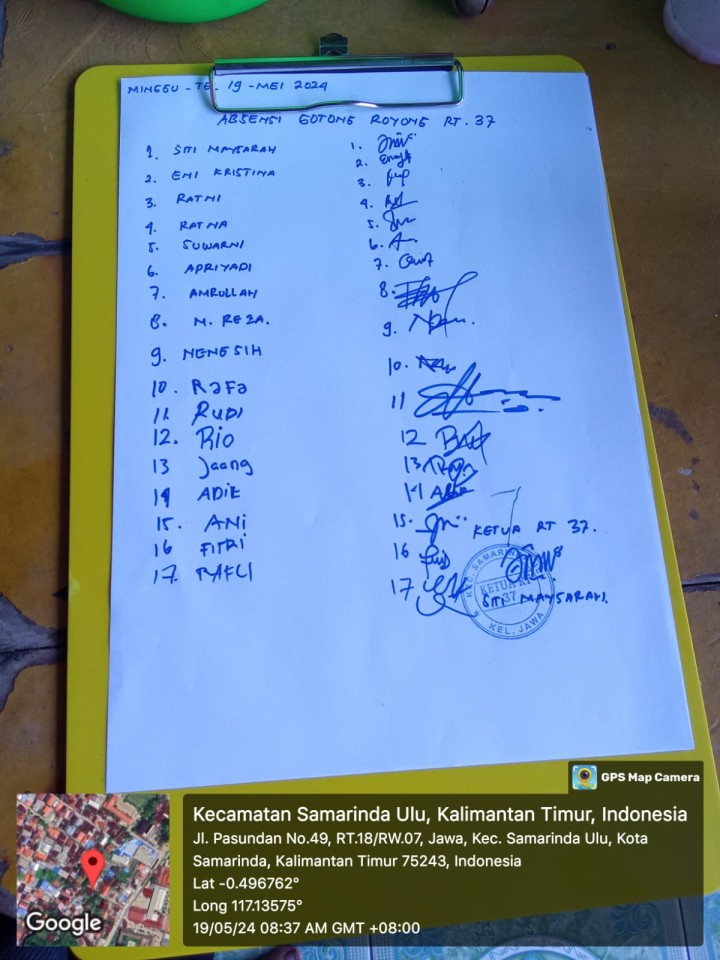 MINGGU - TG. 19 - MEI 2024
ABSENSI GOTONG ROYONG RT. 37
1. SITI MAYSARAH 1.
2. ENI KRISTINA 2.
3. RATNI 3.
4. RATNA 4.
5. SUWARNI 5.
6. APRIYADI 6.
7. AMRULLAH 7.
8. M. REZA. 8.
9. NENESIH 9.
10. RaFa 10.
11. RUDI 11
12. Rio 12
13 Jaang 13
14 ADIK 14
15. ANi 15.
16 FITRI 16
17. RAFLI 17
KETUA RT 37.
KEC. SAMARINDA
KETUA RT
37
KEL. JAWA
SITI MAYSARAH.
GPS Map Camera
Kecamatan Samarinda Ulu, Kalimantan Timur, Indonesia
Jl. Pasundan No.49, RT.18/RW.07, Jawa, Kec. Samarinda Ulu, Kota
Samarinda, Kalimantan Timur 75243, Indonesia
Lat -0.496762°
Long 117.13575°
19/05/24 08:37 AM GMT +08:00
Google